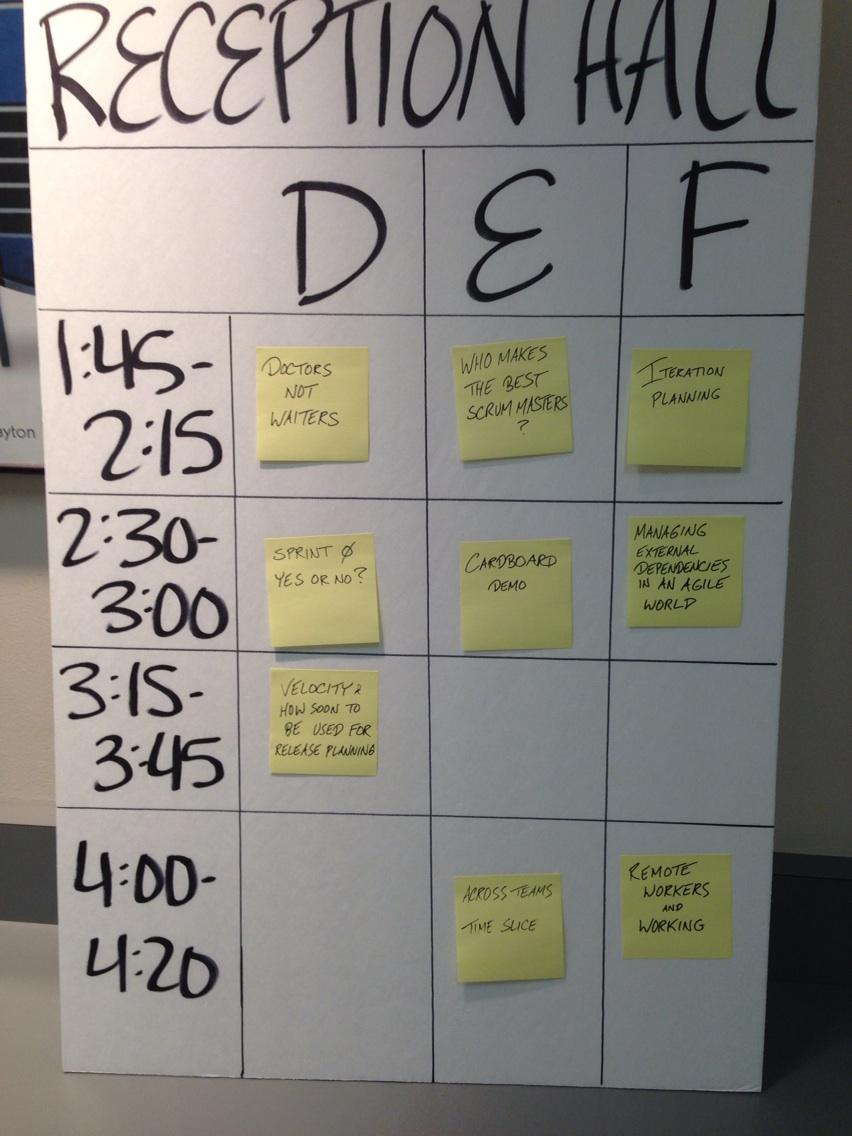 RECEPTION HALL
D E F
1:45-
2:15
DOCTORS
NOT
WAITERS
WHO MAKES
THE BEST
SCRUM MASTERS
?
ITERATION
PLANNING
2:30-
3:00
SPRINT Ø
YES OR NO?
CARDBOARD
DEMO
MANAGING
EXTERNAL
DEPENDENCIES
IN AN AGILE
WORLD
3:15-
3:45
VELOCITY &
HOW SOON TO
BE USED FOR
RELEASE PLANNING
4:00-
4:20
ACROSS TEAMS
TIME SLICE
REMOTE
WORKERS
AND
WORKING
ayton